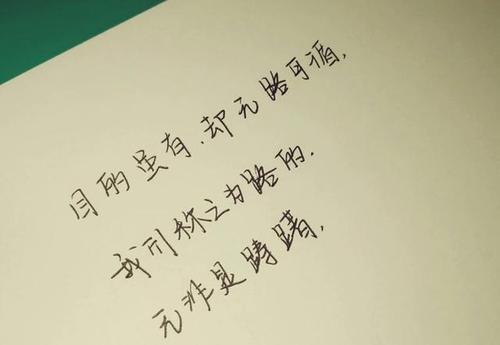 目的虽有、却无路可循、
我们称之为路的、
无非是踌躇、